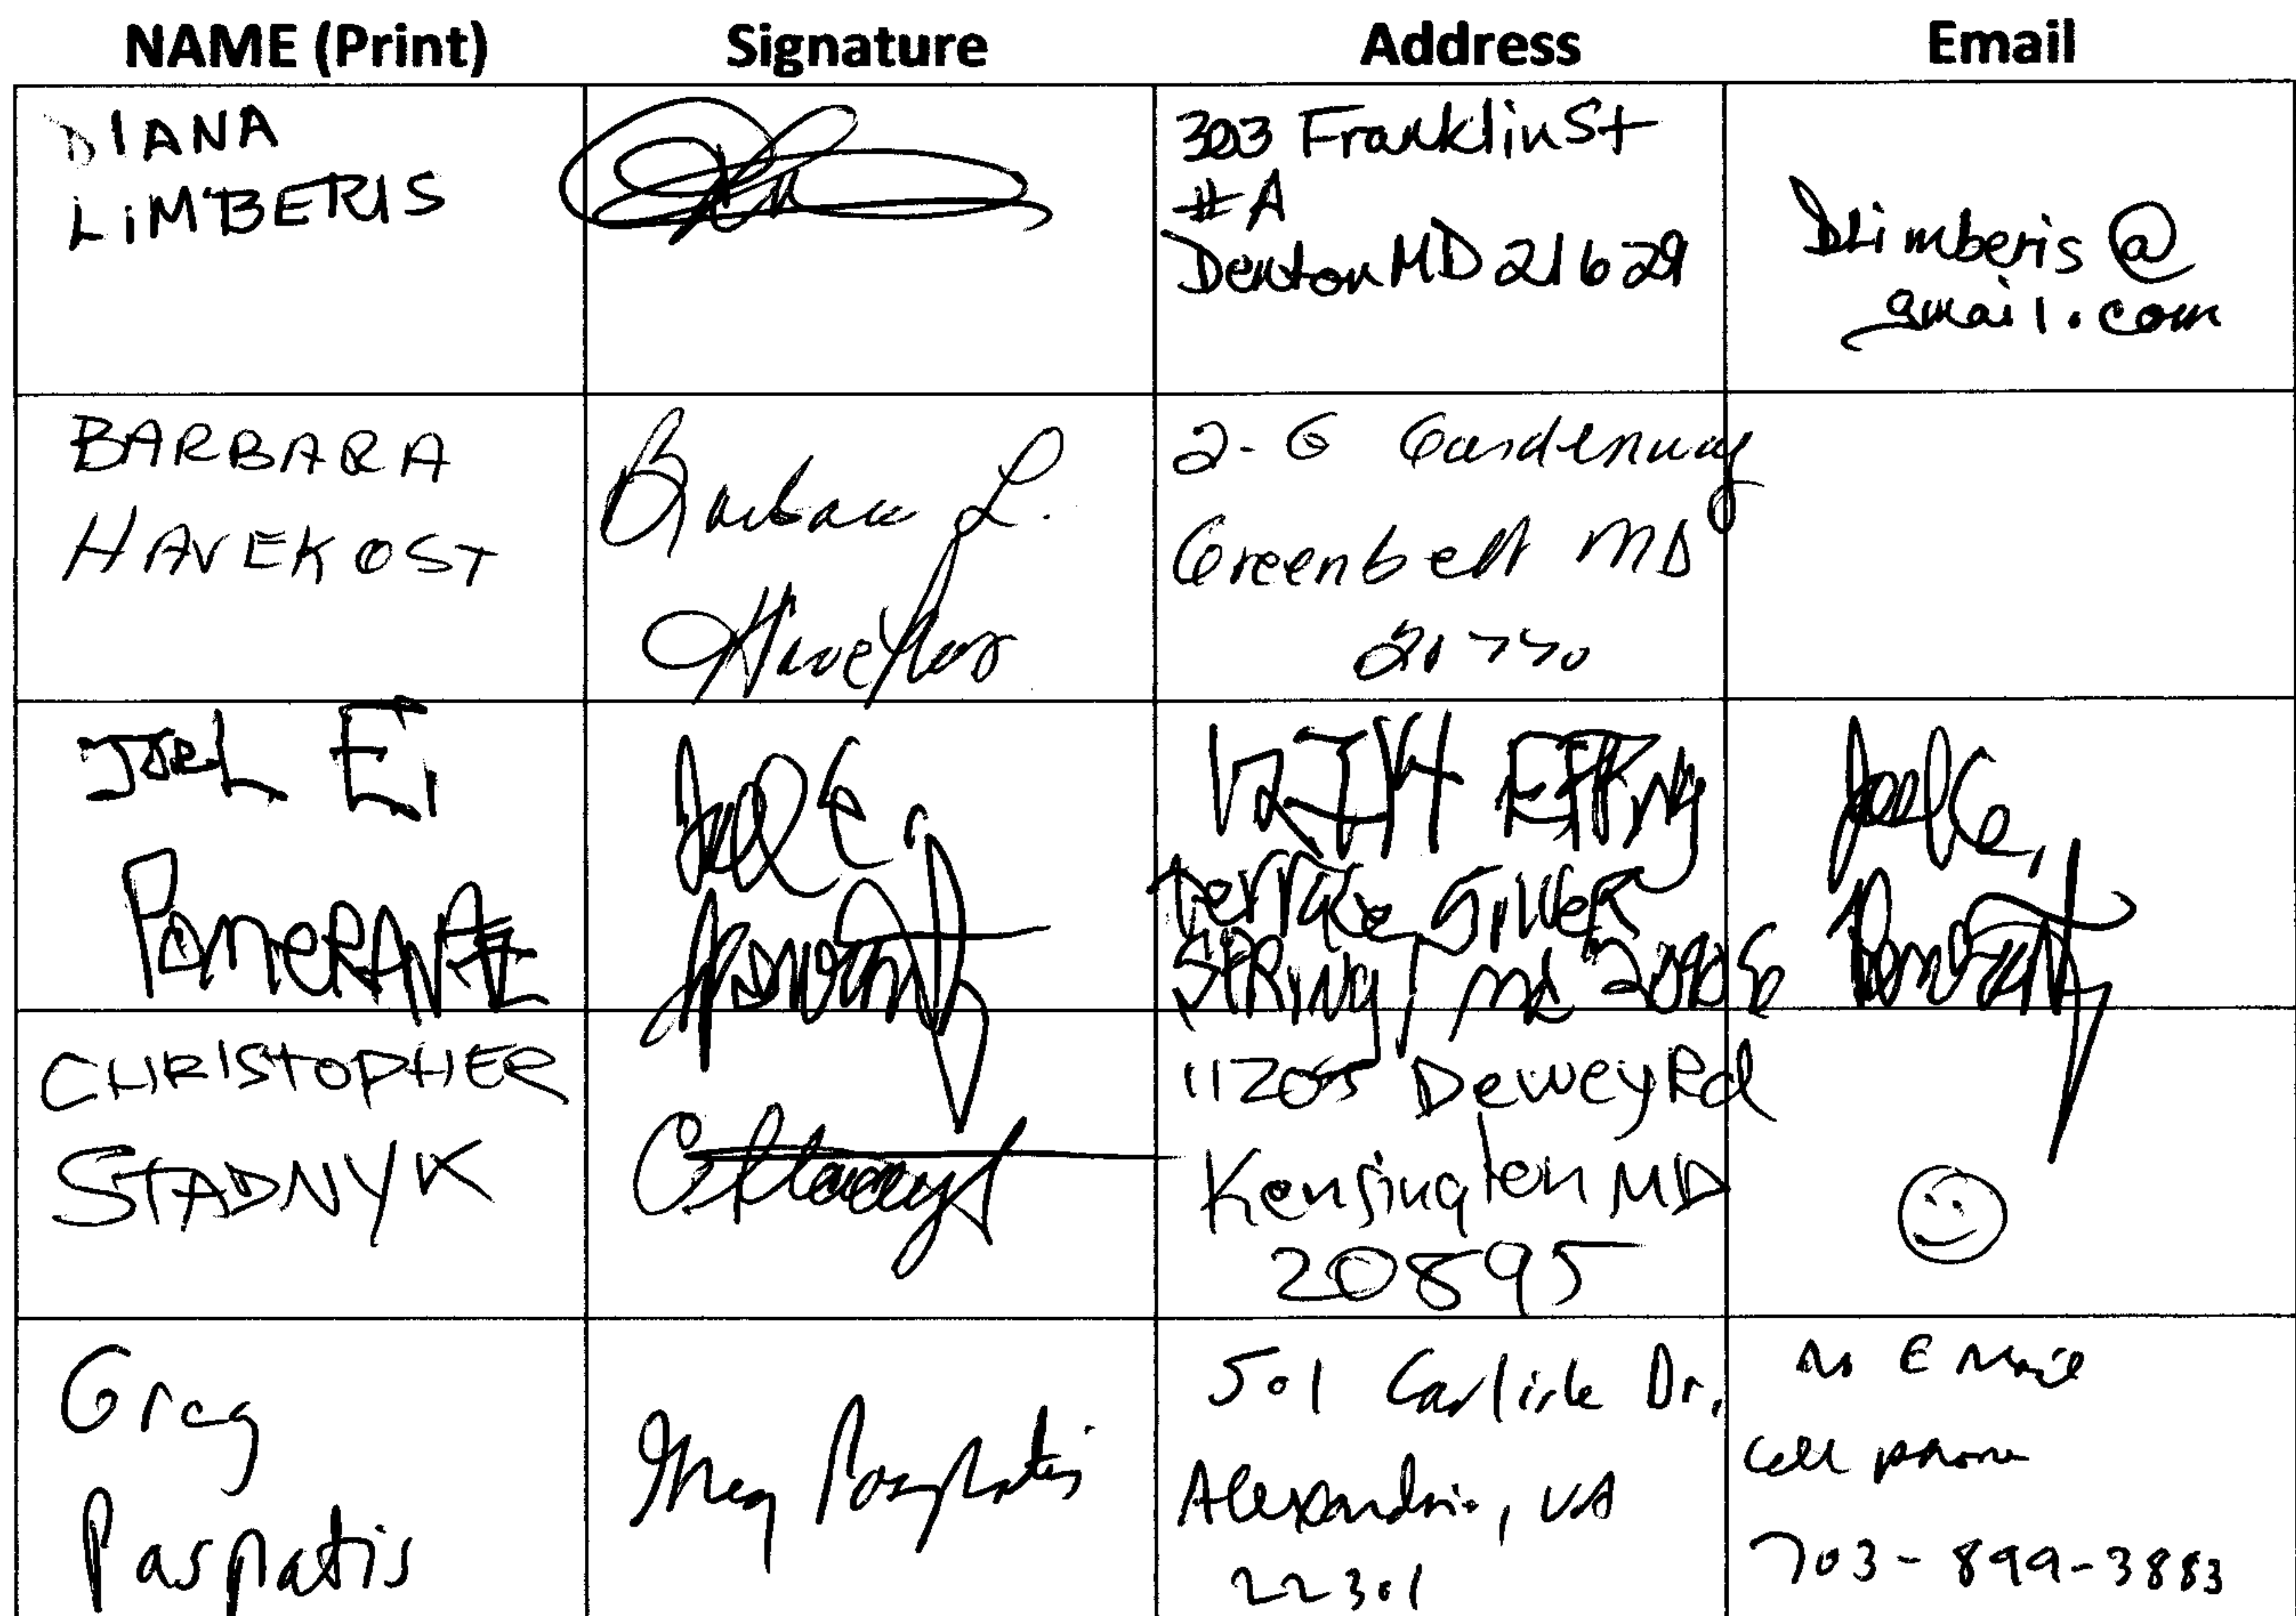 NAME (Print) Signature Address Email
DIANA
LIMBERIS
303 Franklin St
#A
Denton MD 21629
DLimberis@
gmail.com
BARBARA
HAVEKOST
Barbara L.
2-G Gardenway
Greenbelt MD
21770
JOEL E.
POMERANTZ
Joel E.
Terrace, Silver
SPRING, md
Joel E.
CHRISTOPHER
STADNYK
11205 Dewey Rd
Kensington MD
20895
Greg
Paspatis
Greg Paspatis
501 Carlisle Dr.
Alexandria, VA
22301
no Email
cell phone
703-899-3883